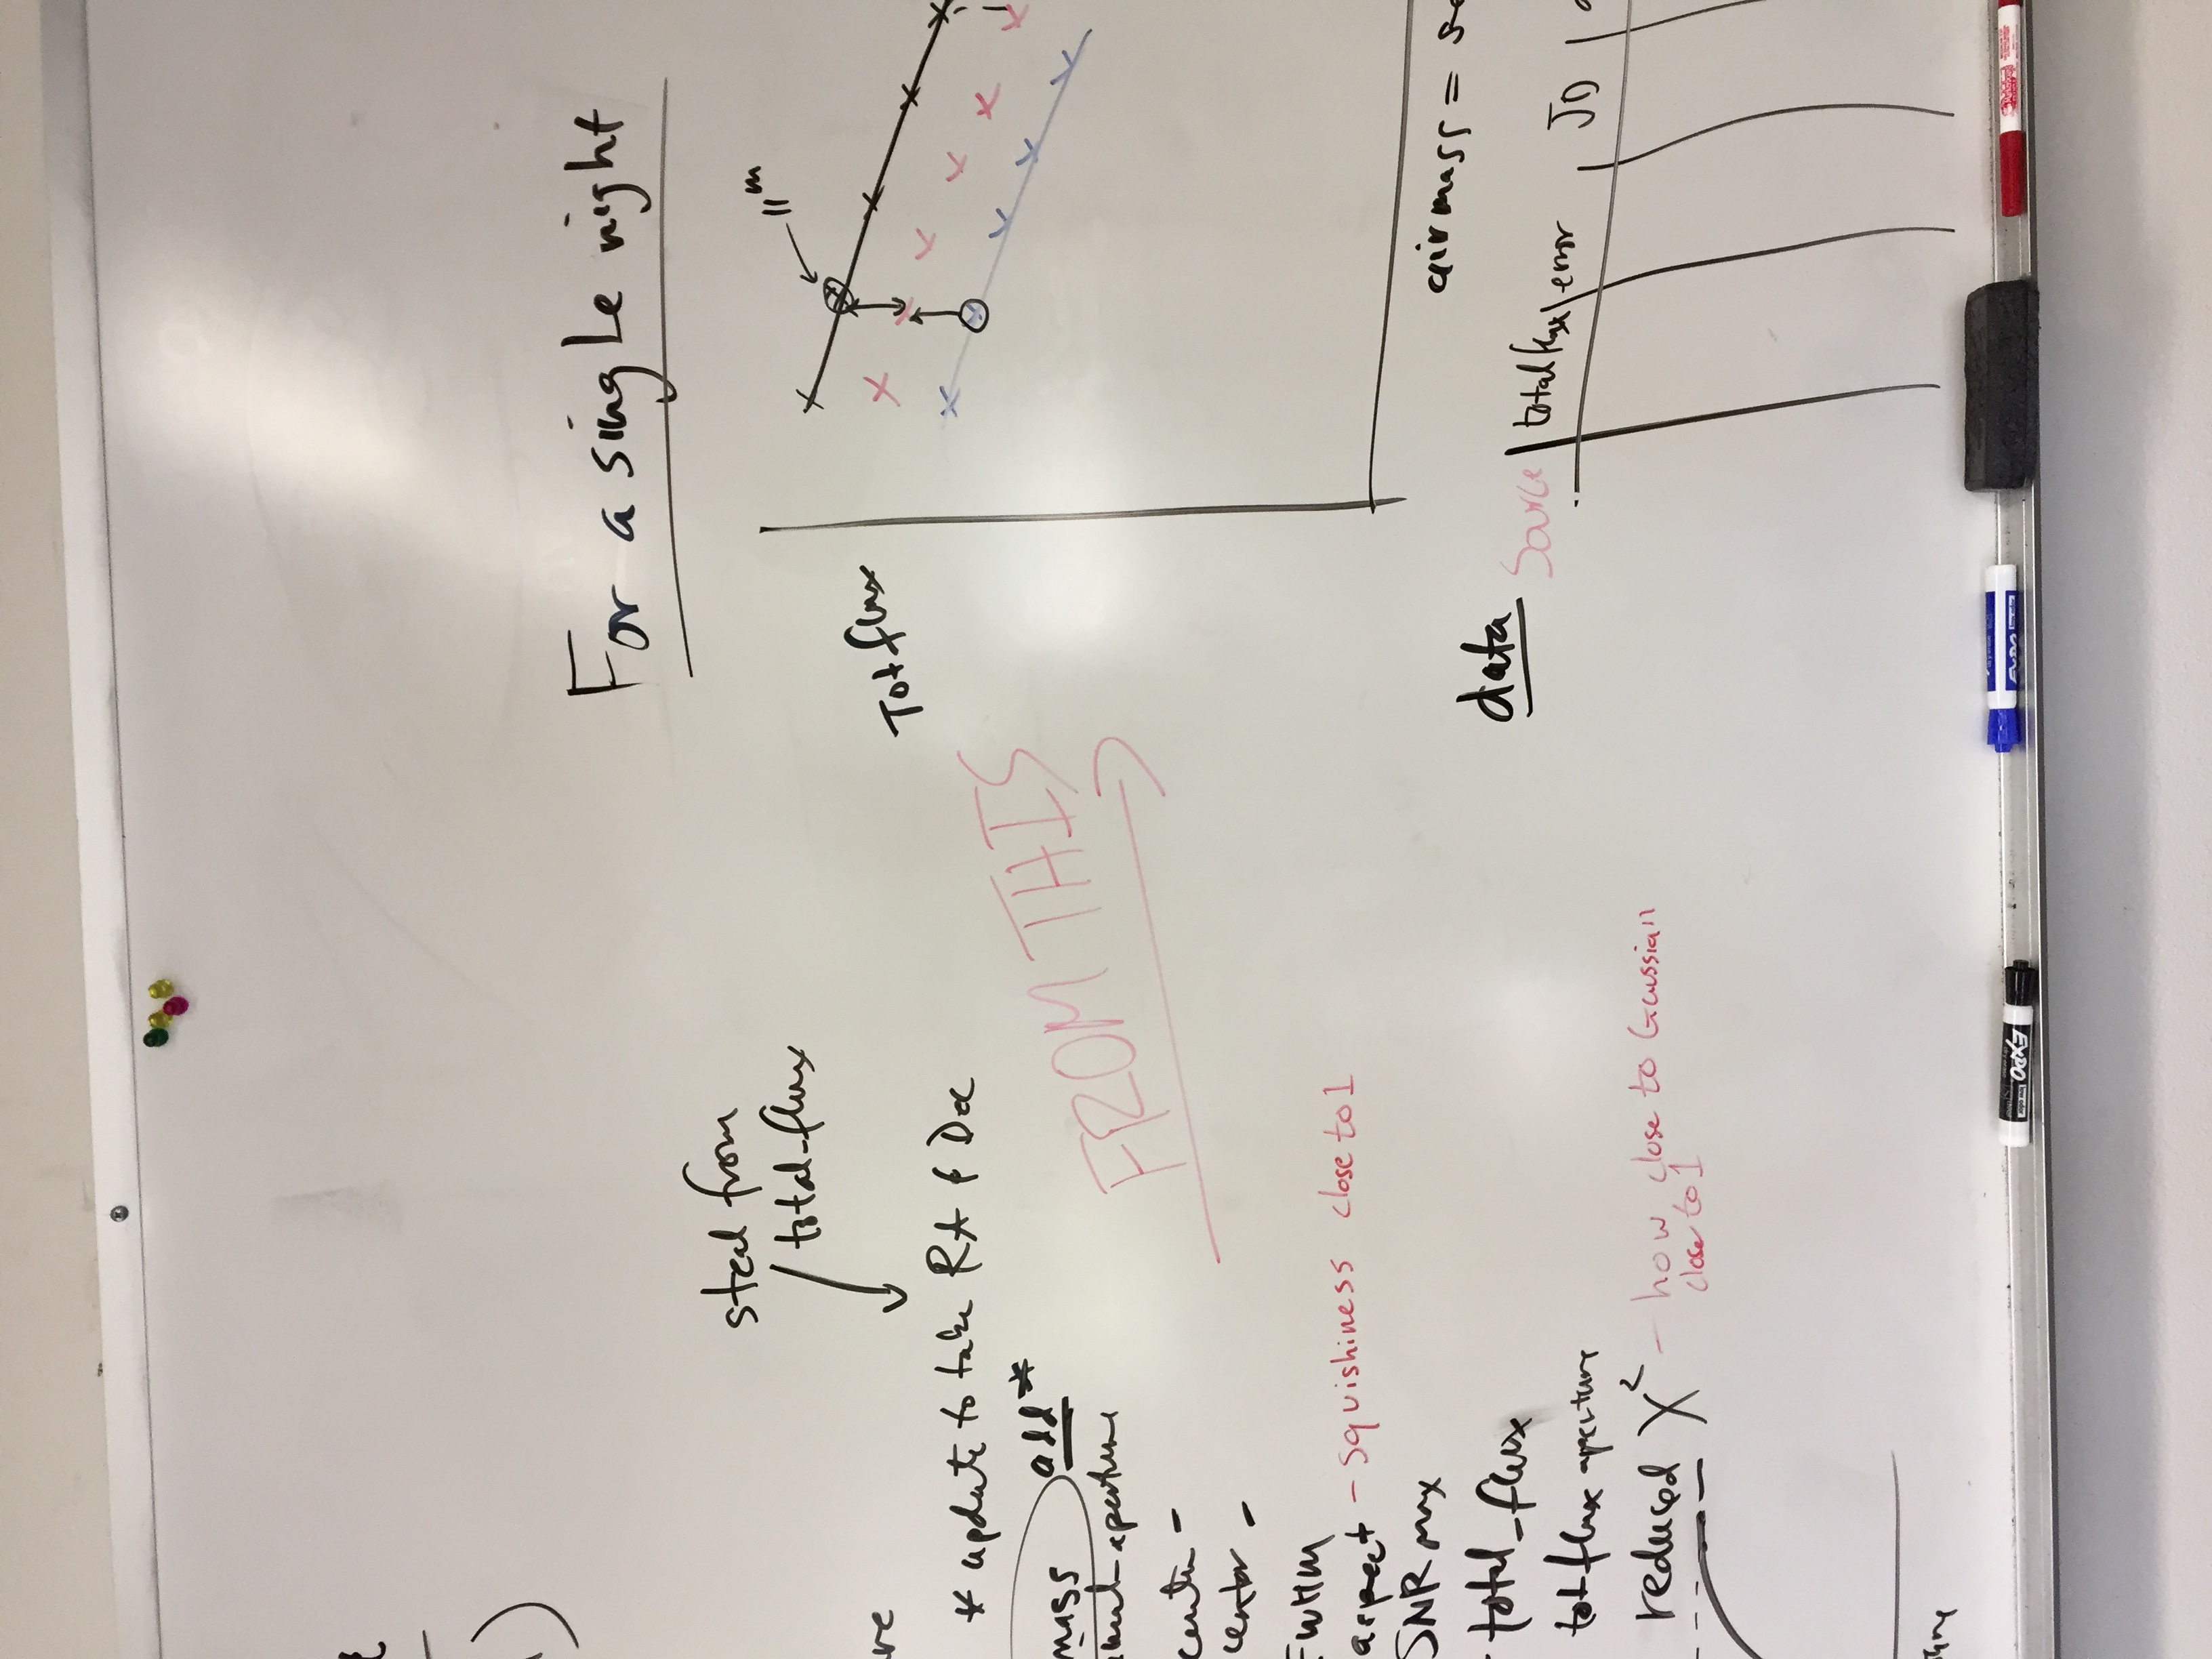 steal from
total-flux
* update to take RA & Dec
mass add*
aperture
center -
FWHM
aspect - squishiness close to 1
SNR max
total_flux
totflux aperture
reduced X² - how close to Gaussian
close to 1
FROM THIS
For a single night
11ᵐ
Totflux
airmass =
data
Source total flux error JD
EXPO
low odor
EXPO